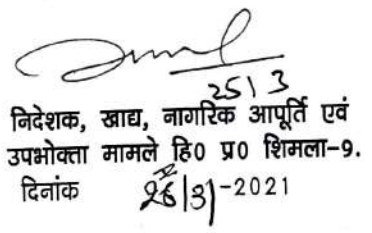 25|3
निदेशक, खाद्य, नागरिक आपूर्ति एवं
उपभोक्ता मामले हि0 प्र0 शिमला-9.
दिनांक 26|3|-2021